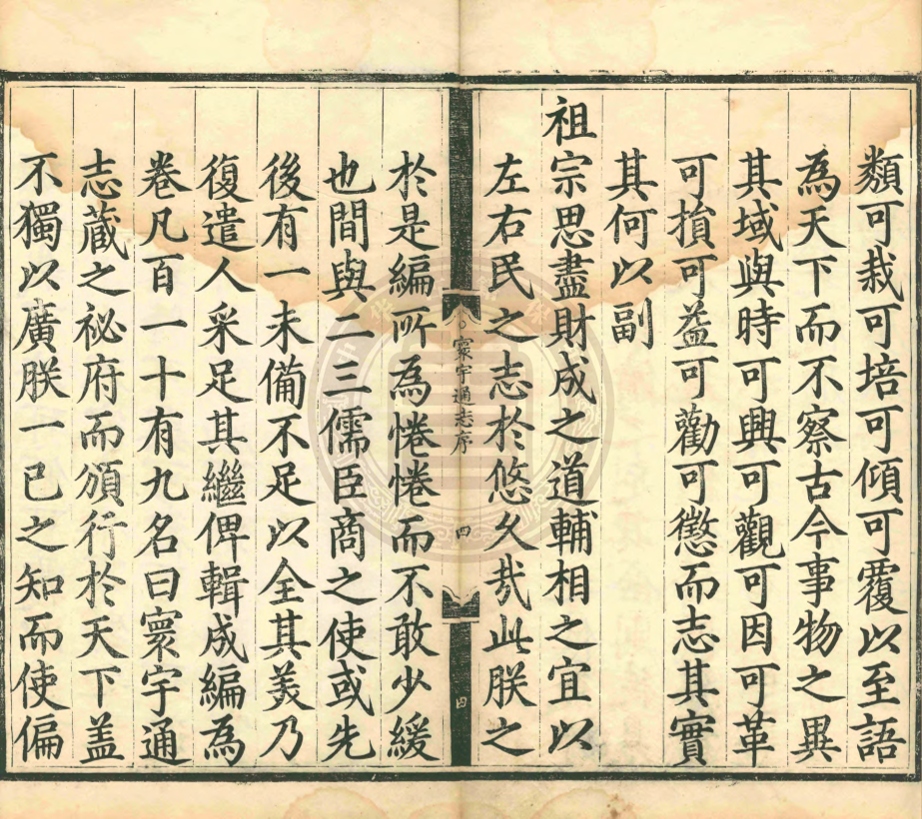 類可栽可培可傾可覆以至語
為天下而不察古今事物之異
其域與時可興可觀可因可革
可損可益可勸可懲而志其實
其何以副
祖宗思盡財成之道輔相之宜以
左右民之志於悠久㢤此朕之
寰宇通志序
四
四
於是編所為惓惓而不敢少緩
也間與二三儒臣商之使或先
後有一未備不足以全其美乃
復遣人采足其繼俾輯成編為
卷凡百一十有九名曰寰宇通
志藏之祕府而頒行於天下盖
不獨以廣朕一己之知而使偏